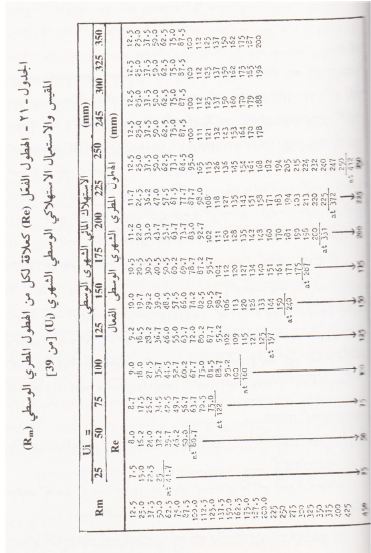 الجدول - ٢١ - الهطول الفعال (Re) كعلاقة لكل من الهطول المطري الوسطي (Rm)
المقيس والاستعمال الاستهلاكي الوسطي الشهري (Ui) [من 39]
الاستهلاك المائي الشهري الوسطي (mm)
Ui = 25 50 75 100 125 150 175 200 225 250 245 300 325 350
Rm Re الهطول المطري الشهري الوسطي الفعال (mm)
12.5 7.5 8.0 8.7 9.0 9.2 10.0 10.5 11.2 11.7 12.5 12.5 12.5 12.5 12.5
25.0 15.0 16.2 17.5 18.0 18.5 19.7 20.5 22.0 24.5 25.0 25.0 25.0 25.0 25.0
37.5 22.5 24.0 26.2 27.5 28.2 29.2 30.5 33.0 36.2 37.5 37.5 37.5 37.5 37.5
50.0 25 32.2 34.5 35.7 36.7 39.0 40.5 43.7 47.0 50.0 50.0 50.0 50.0 50.0
62.5 at 41.7 39.7 42.5 44.5 46.0 48.5 50.5 53.7 57.5 62.5 62.5 62.5 62.5 62.5
75.0 46.2 49.7 52.7 55.0 57.5 60.2 63.7 67.5 73.7 75.0 75.0 75.0 75.0
87.5 50.0 56.7 60.2 63.7 66.0 69.7 73.7 77.7 84.5 87.5 87.5 87.5 87.5
100.0 at 80.7 63.7 67.7 72.0 74.2 78.7 83.0 87.7 95.0 100 100 100 100
112.5 70.5 75.0 80.2 82.5 87.2 92.7 98.0 105 111 112 112 112
125.0 75.0 82.5 87.7 90.5 95.7 102 108 115 121 125 125 125
137.5 at 122 88.7 95.2 98.7 104 111 118 126 132 137 137 137
150.0 95.2 102 106 112 120 127 136 143 150 150 150
162.5 100 109 113 120 128 135 145 153 160 162 162
175.0 at 160 115 120 127 135 143 154 164 170 175 175
187.5 121 126 134 142 151 161 170 179 185 187
200.0 125 133 140 148 158 168 178 188 196 200
225 at 197 144 151 160 171 182
250 150 161 170 183 194
275 at 240 171 181 194 205
300 175 190 203 215
325 at 287 198 213 224
350 200 220 232
375 at 331 225 240
400 at 372 247
425 250
450 at 412